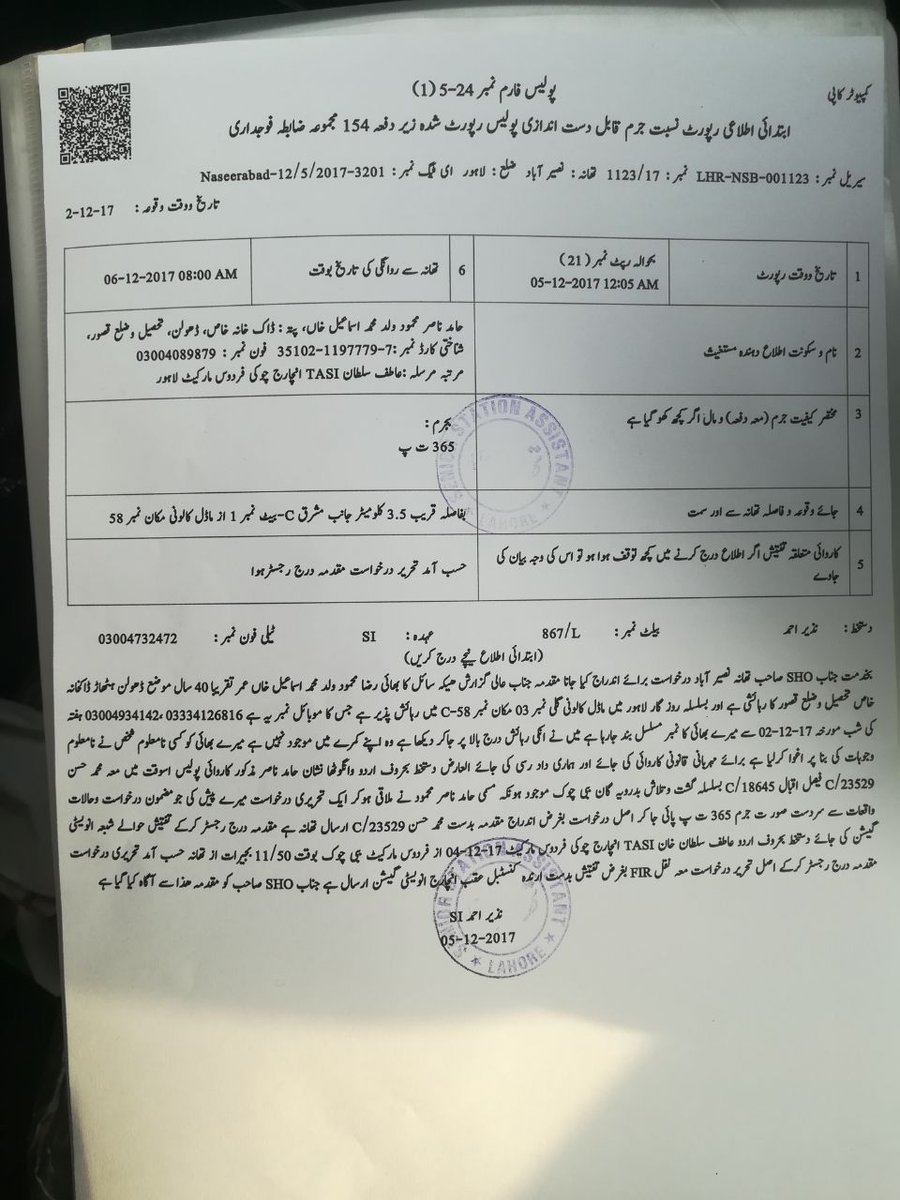 کمپیوٹر کاپی
پولیس فارم نمبر 24-5 (1)
ابتدائی اطلاعی رپورٹ نسبت جرم قابل دست اندازی پولیس رپورٹ شدہ زیر دفعہ 154 مجموعہ ضابطہ فوجداری
سیریل نمبر : LHR-NSB-001123 نمبر : 1123/17 تھانہ : نصیر آباد ضلع : لاہور ای ٹیگ نمبر : Naseerabad-12/5/2017-3201
تاریخ ووقت وقوعہ : 2-12-17
1 تاریخ ووقت رپورٹ بحوالہ رپٹ نمبر (21) 05-12-2017 12:05 AM
6 تھانہ سے روانگی کی تاریخ بوقت 06-12-2017 08:00 AM
2 نام و سکونت اطلاع دہندہ مستغیث
حامد ناصر محمود ولد محمد اسماعیل خاں، پتہ : ڈاک خانہ خاص، ڈھولن، تحصیل و ضلع قصور،
شناختی کارڈ نمبر :35102-1197779-7 فون نمبر : 03004089879
مرتبہ مرسلہ :عاطف سلطان TASI انچارج چوکی فردوس مارکیٹ لاہور
3 مختصر کیفیت جرم (معہ دفعہ) و مال اگر کچھ کھو گیا ہے
بجرم :
365 ت پ
4 جائے وقوعہ و فاصلہ تھانہ سے اور سمت
بفاصلہ قریب 3.5 کلومیٹر جانب مشرق C-بیٹ نمبر 1 از ماڈل کالونی مکان نمبر 58
5 کاروائی متعلقہ تفتیش اگر اطلاع درج کرنے میں کچھ توقف ہوا ہو تو اس کی وجہ بیان کی
جاوے
حسب آمد تحریر درخواست مقدمہ درج رجسٹر ہوا
دستخط : نذیر احمد بیلٹ نمبر : 867/L عہدہ : SI ٹیلی فون نمبر : 03004732472
(ابتدائی اطلاع نیچے درج کریں)
بخدمت جناب SHO صاحب تھانہ نصیر آباد درخواست برائے اندراج کیا جانا مقدمہ جناب عالی گزارش ھیکہ سائل کا بھائی رضا محمود ولد محمد اسماعیل خاں عمر تقریبا 40 سال موضع ڈھولن ہتھاڑ ڈاکخانہ
خاص تحصیل و ضلع قصور کا رہائشی ہے اور بسلسلہ روز گار لاہور میں ماڈل کالونی گلی نمبر 03 مکان نمبر C-58 میں رہائش پذیر ہے جس کا موبائل نمبر یہ ہے 03334126816 ،03004934142 ہفتہ
کی شب مورخہ 17-12-02 سے میرے بھائی کا نمبر مسلسل بند جارہا ہے میں نے انکی رہائش درج بالا پر جاکر دیکھا ہے وہ اپنے کمرے میں موجود نہیں ہے میرے بھائی کو کسی نامعلوم شخص نے نامعلوم
وجوہات کی بنا پر اغوا کرلیا ہے برائے مہربانی قانونی کاروائی کی جائے اور ہماری داد رسی کی جائے العارض دستخط بحروف اردو وانگوٹھا نشان حامد ناصر مذکور کاروائی پولیس اسوقت میں معہ محمد حسن
C/23529 فیصل اقبال C/18645 بسلسلہ گشت و تلاش بدرویہ گان جی چوک موجود ہونکہ مسمی حامد ناصر محمود نے ملاقی ہوکر ایک تحریری درخواست میرے پیش کی جو مضمون درخواست و حالات
واقعات سے سردست صورت جرم 365 ت پ پائی جاکر اصل درخواست بغرض اندراج مقدمہ بدست محمد حسن C/23529 ارسال تھانہ ہے مقدمہ درج رجسٹر کرکے تفتیش حوالے شعبہ انویسٹی
گیشن کی جائے دستخط بحروف اردو عاطف سلطان خان TASI انچارج چوکی فردوس مارکیٹ 17-12-04 از فردوس مارکیٹ جی چوک بوقت 11/50 بجےرات از تھانہ حسب آمد تحریری درخواست
مقدمہ درج رجسٹر کرکے اصل تحریر درخواست معہ نقل FIR بغرض تفتیش بدست آرندہ کنسٹبل عقب انچارج انویسٹی گیشن ارسال ہے جناب SHO صاحب کو مقدمہ ھذا سے آگاہ کیا گیا ہے
نذیر احمد SI
05-12-2017
SENIOR STATION ASSISTANT
LAHORE
SENIOR STATION ASSISTANT
LAHORE